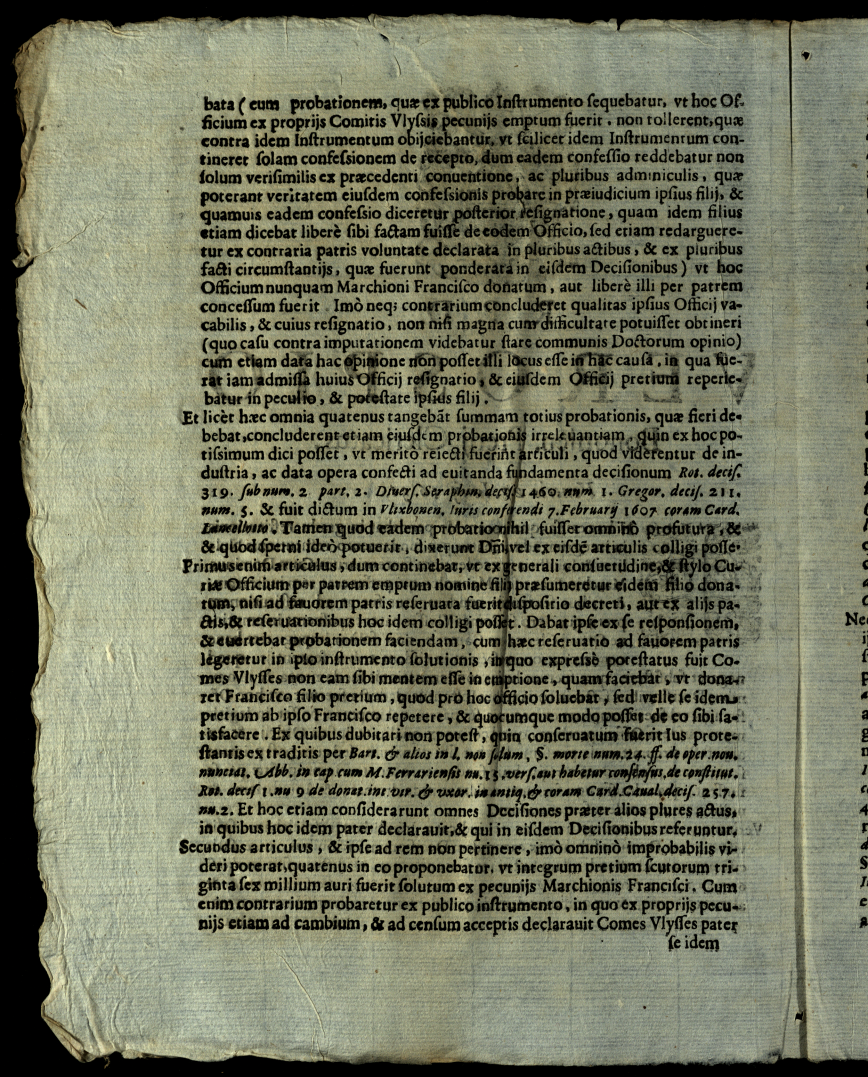 bata ( cum probationem, quæ ex publico Inſtrumento ſequebatur, vt hoc Of-
ficium ex proprijs Comitis Vlyſſis pecunijs emptum fuerit, non tollerent, quæ
contra idem Inſtrumentum obijciebantur, vt ſcilicet idem Inſtrumentum con-
tineret ſolam confeſsionem de recepto, dum eadem confeſſio reddebatur non
ſolum veriſimilis ex præcedenti conuentione, ac pluribus adminiculis, quæ
poterant veritatem eiuſdem confeſsionis probare in præiudicium ipſius filij, &
quamuis eadem confeſſio diceretur poſterior reſignatione, quam idem filius
etiam dicebat liberè ſibi factam fuiſſe de eodem Officio, ſed etiam redarguere-
tur ex contraria patris voluntate declarata in pluribus actibus, & ex pluribus
facti circumſtantijs, quæ fuerunt ponderata in eiſdem Deciſionibus ) vt hoc
Officium nunquam Marchioni Franciſco donatum, aut liberè illi per patrem
conceſſum fuerit. Imò neq; contrarium concluderet qualitas ipſius Officij va-
cabilis, & cuius reſignatio, non niſi magna cum difficultate potuiſſet obtineri
(quo caſu contra imputationem videbatur ſtare communis Doctorum opinio)
cum etiam data hac opinione non poſſet illi locus eſſe in hac cauſa, in qua fue-
rat iam admiſſa huius Officij reſignatio, & eiuſdem Officij pretium reperie-
batur in peculio, & poteſtate ipſius filij.
Et licèt hæc omnia quatenus tangebãt ſummam totius probationis, quæ fieri de-
bebat, concluderent etiam eiuſdem probationis irreleuantiam, quin ex hoc po-
tiſsimum dici poſſet, vt meritò reiecti fuerint articuli, quod viderentur de in-
duſtria, ac data opera confecti ad euitanda fundamenta deciſionum Rot. deciſ.
319. ſub num. 2 part. 2. Diuerſ. Seraphin. deciſ. 1460 num 1. Gregor. deciſ. 211.
num. 5. & fuit dictum in Vlixbonen. Iuris conferendi 7. February 1607 coram Card.
Lancellotto. Tamen quod eadem probatio nihil fuiſſet omninò profutura, &
& quod ſperni ideò potuerit, dixerunt Dñi vel ex eiſdẽ articulis colligi poſſe.
Primus enim articulus, dum continebat, vt ex generali conſuetudine, & ſtylo Cu-
riæ Officium per patrem emptum nomine filij præſumeretur eidem filio dona-
tum, niſi ad fauorem patris reſeruata fuerit diſpoſitio decreti, aut ex alijs pa-
ctis, & reſeruationibus hoc idem colligi poſſet. Dabat ipſe ex ſe reſponſionem,
& euertebat probationem faciendam, cum hæc reſeruatio ad fauorem patris
legeretur in ipſo inſtrumento ſolutionis, in quo expreſsè poteſtatus fuit Co-
mes Vlyſſes non eam ſibi mentem eſſe in emptione, quam faciebat, vt dona-
ret Franciſco filio pretium, quod pro hoc officio ſoluebat, ſed velle ſe idem
pretium ab ipſo Franciſco repetere, & quocumque modo poſſet de eo ſibi ſa-
tisfacere. Ex quibus dubitari non poteſt, quin conſeruatum fuerit Ius prote-
ſtantis ex traditis per Bart. & alios in l. non ſolum, §. morte num. 24. ff. de oper. nou.
nunciat. Abb. in cap cum M. Ferrarienſis nu. 15. verſ. aut habetur conſenſus, de conſtitut.
Rot. deciſ 1. nu 9 de donat. int. vir. & vxor. in antiq. & coram Card. Caual. deciſ. 257.
nu. 2. Et hoc etiam conſiderarunt omnes Deciſiones præter alios plures actus,
in quibus hoc idem pater declarauit, & qui in eiſdem Deciſionibus referuntur.
Secundus articulus, & ipſe ad rem non pertinere, imò omninò improbabilis vi-
deri poterat, quatenus in eo proponebatur, vt integrum pretium ſcutorum tri-
ginta ſex millium auri fuerit ſolutum ex pecunijs Marchionis Franciſci. Cum
enim contrarium probaretur ex publico inſtrumento, in quo ex proprijs pecu-
nijs etiam ad cambium, & ad cenſum acceptis declarauit Comes Vlyſſes pater
ſe idem
Nec